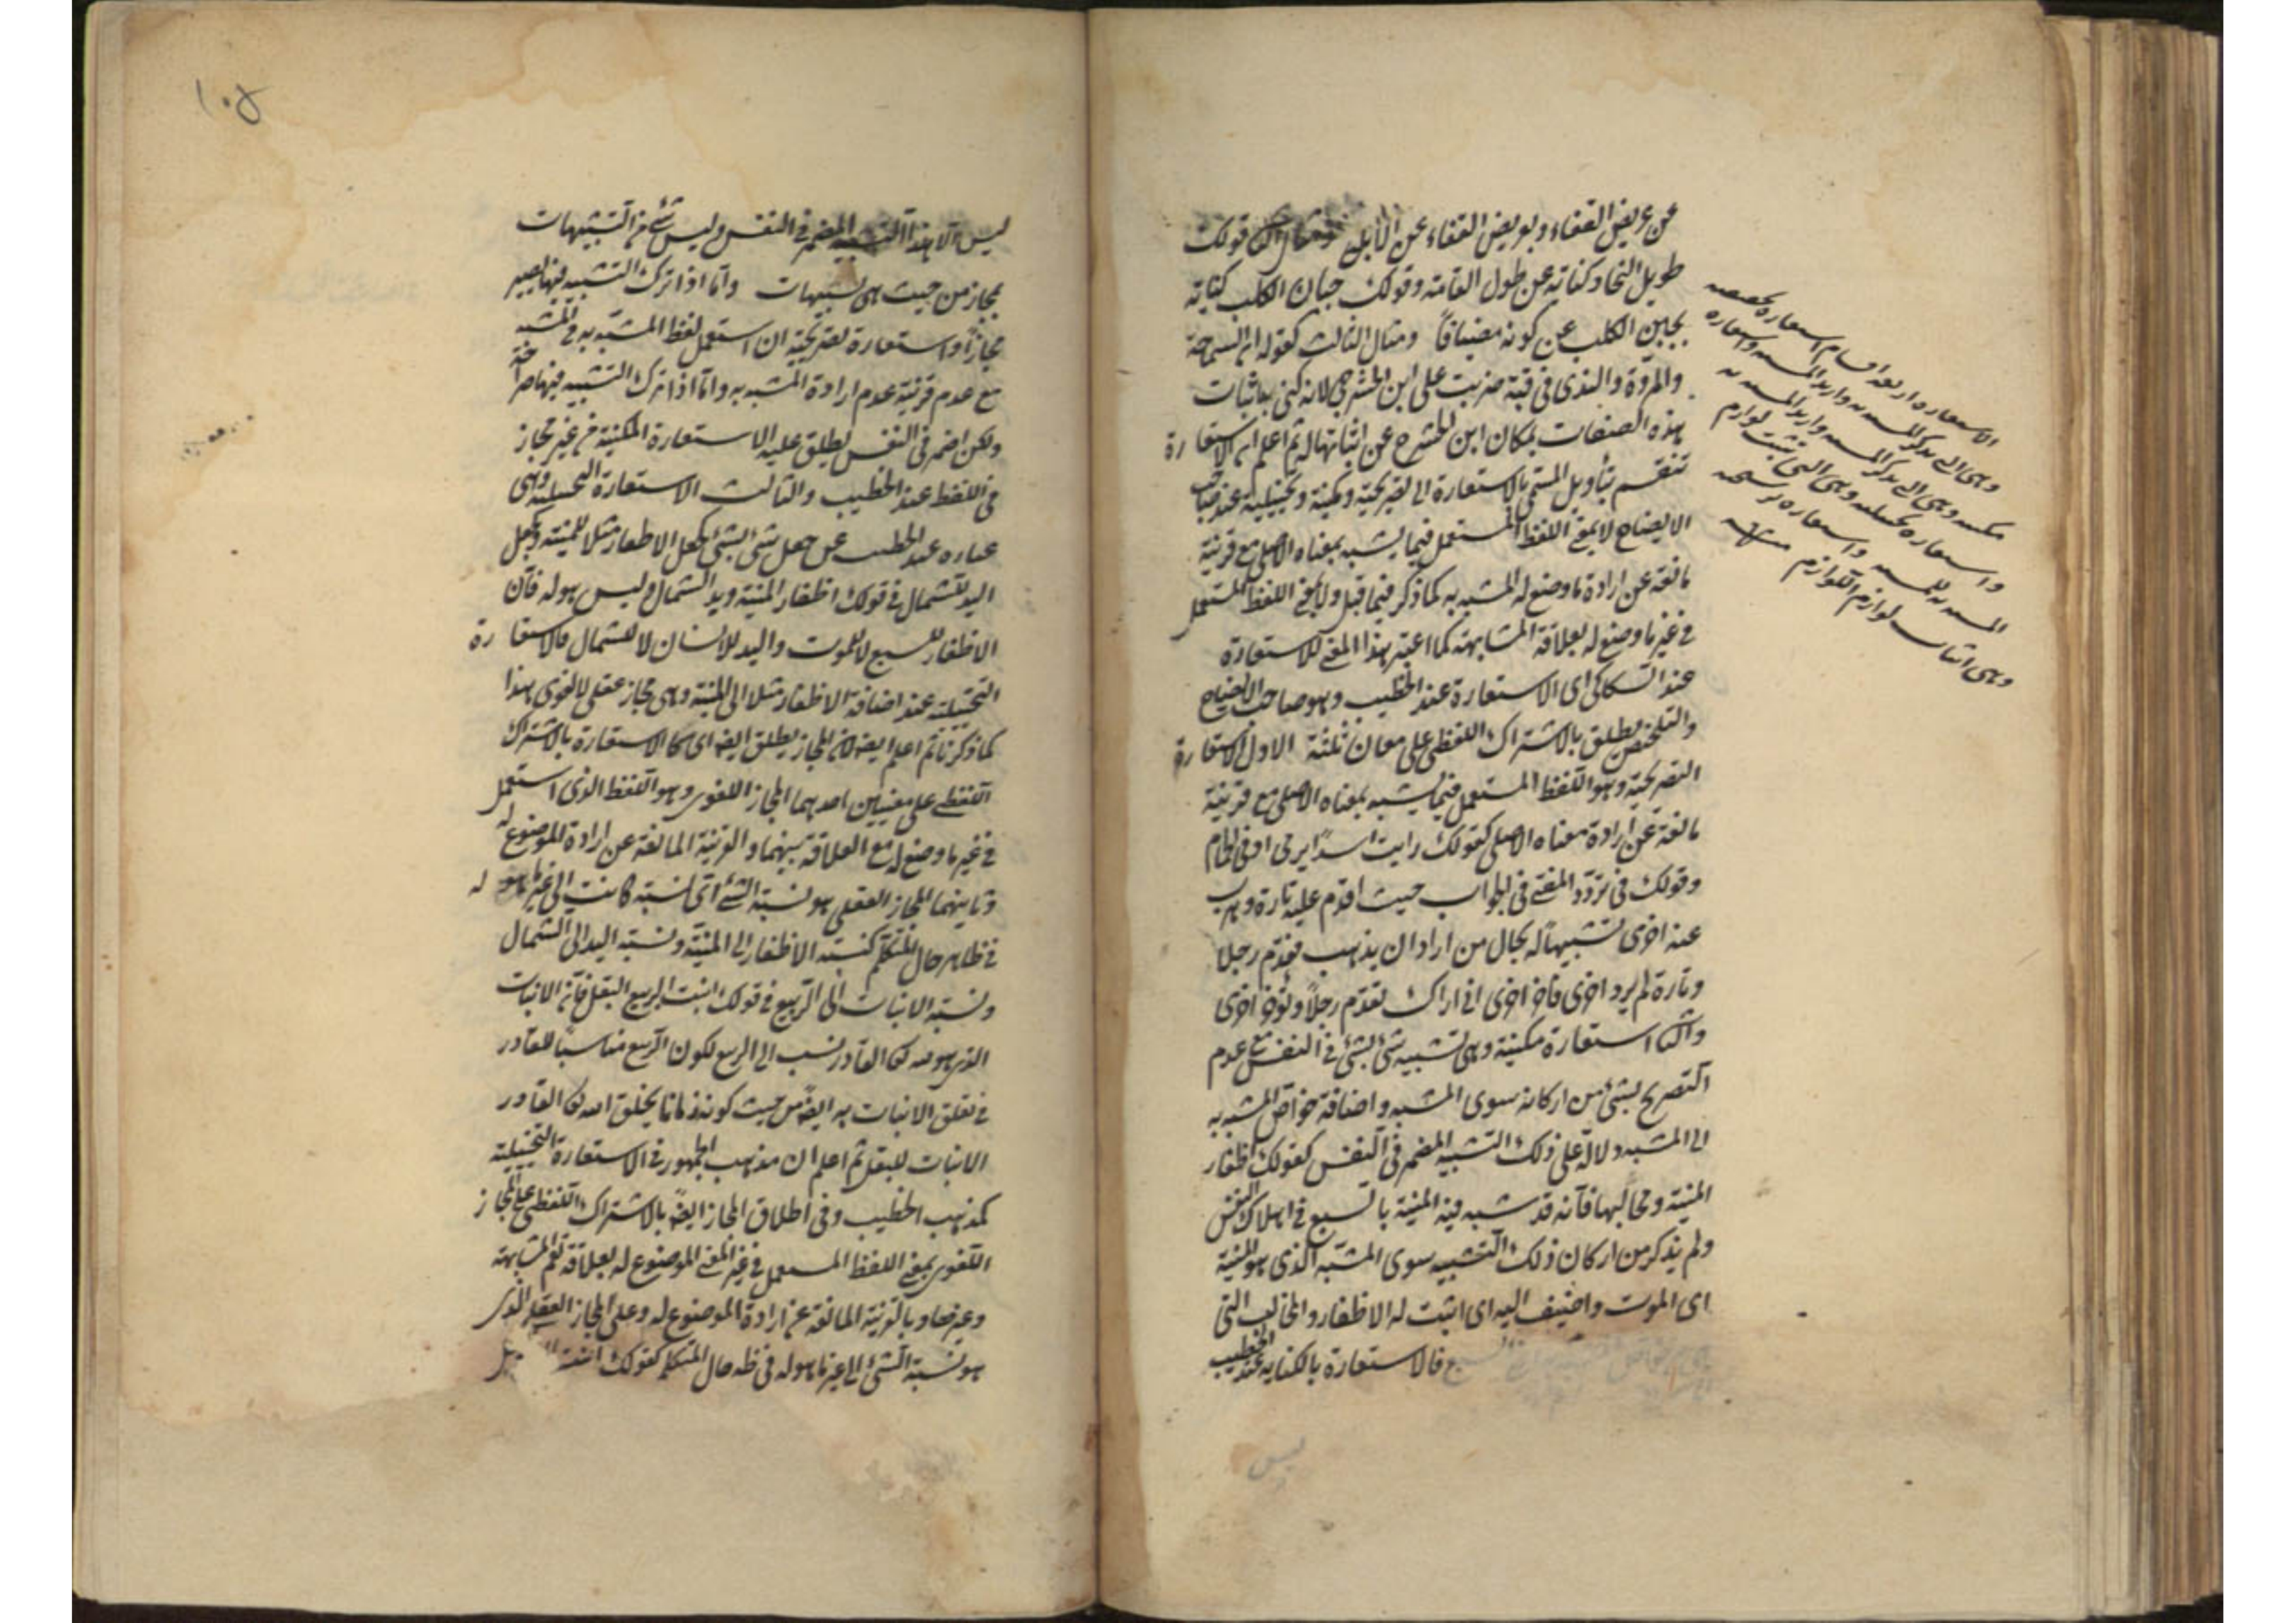 عن عريض القفاء وبعريض القفاء عن الابله ومثال قولك
طويل النجاد كناية عن طول القامة وقولك جبان الكلب كناية
بجبن الكلب عن كونه مضيافاً ومثال الثالث كقوله ان السماحة
والمروة والندى في قبة ضربت على ابن الحشرج لانه كنى باثبات
هذه الصفات بمكان ابن الحشرج عن اثباتها له ثم اعلم ان الاستعارة
تنقسم بتأويل المسمى بالاستعارة الى تصريحية ومكنية وتخييلية عند صاحب
الايضاح لا بمعنى اللفظ المستعمل فيما يشبه بمعناه الاصلي مع قرينة
مانعة عن ارادة ما وضع له المشبه به كما ذكر فيما قبل ولا بمعنى اللفظ المستعمل
في غير ما وضع له بعلاقة المشابهة كما اعتبر هذا المعنى للاستعارة
عند السكاكي اى الاستعارة عند الخطيب وهو صاحب الايضاح
والتلخيص يطلق بالاشتراك اللفظي على معان ثلثة الاول الاستعارة
التصريحية وهو اللفظ المستعمل فيما يشبه بمعناه الاصلي مع قرينة
مانعة عن ارادة معناه الاصلي كقولك رايت اسداً يرمى او في الحمام
وقولك في تردد المفتى في الجواب حيث اقدم عليه تارة وهرب
عنه اخرى تشبيهاً له بحال من اراد ان يذهب فقدم رجلا
وتارة لم يرد اخرى فاخر اخرى انى اراك تقدم رجلاً وتؤخر اخرى
والثانى استعارة مكنية وهى تشبيه شئ بشئ في النفس مع عدم
التصريح بشئ من اركانه سوى المشبه واضافة خواص المشبه به
الى المشبه دلالة على ذلك التشبيه المضمر في النفس كقولك اظفار
المنية ومخالبها فانه قد شبه فيه المنية بالسبع في اهلاك النفس
ولم يذكر من اركان ذلك التشبيه سوى المشبه الذى هو المنية
اى الموت واضيف اليه اى اثبت له الاظفار والمخالب التى
فالاستعارة بالكناية عند الخطيب
ليس
الاستعاره اربعه اقسام استعاره
وهى التى يذكر المشبه به واريد المشبه واستعاره
مكنيه وهى التى يذكر المشبه واريد المشبه به
واستعاره تخييليه وهى التى تثبت لوازم
المشبه به للمشبه واستعاره ترشيحيه
وهى اثبات لوازم اللوازم
١٠٥
ليس الا هذا التشبيه المضمر في النفس وليس شئ من التشبيهات
بمجاز من حيث هى تشبيهات واما اذا ترك التشبيه فيها يصير
مجازاً واستعارة تصريحية ان استعمل لفظ المشبه به في المشبه
مع عدم قرينة عدم ارادة المشبه به واما اذا ترك التشبيه فيها صراحة
ولكن اضمر في النفس يطلق عليه الاستعارة المكنية من غير تجاز
في اللفظ عند الخطيب والثالث الاستعارة التخييلية وهى
عباره عند الخطيب عن جعل شئ لشئ كجعل الاظفار مثلا للمنية وجعل
اليد للشمال في قولك اظفار المنية ويد الشمال وليس هو له فان
الاظفار للسبع لا للموت واليد للانسان لا للشمال فالاستعارة
التخييلية عند اضافة الاظفار مثلا الى المنية وهى مجاز عقلى لا لغوى هذا
كما ذكرنا ثم اعلم ايضا ان المجاز يطلق ايضا اى كالاستعارة بالاشتراك
اللفظى على معنيين احدهما المجاز اللغوى وهو اللفظ الذى استعمل
في غير ما وضع له مع العلاقة بينهما والقرينة المانعة عن ارادة الموضوع له
وثانيهما المجاز العقلى هو نسبة الشئ اى نسبة كانت الى غير ما هو له
في ظاهر حال المتكلم كنسبة الاظفار الى المنية ونسبة اليد الى الشمال
ونسبة الانبات الى الربيع في قولك انبت الربيع البقل فان الانبات
الذى هو لله تعالى القادر نسب الى الربيع لكون الربيع مناسباً للقادر
في تعلق الانبات به ايضاً من حيث كونه زمانا يخلق الله تعالى القادر
الانبات للبقل ثم اعلم ان مذهب الجمهور في الاستعارة التخييلية
كمذهب الخطيب وفى اطلاق المجاز ايضاً بالاشتراك اللفظى على المجاز
اللغوى بمعنى اللفظ المستعمل في غير المعنى الموضوع له بعلاقة المشابهة
وغيرها وبالقرينة المانعة عن ارادة الموضوع له وعلى المجاز العقلى الذى
هو نسبة الشئ الى غير ما هو له في ظاهر حال المتكلم كقولك